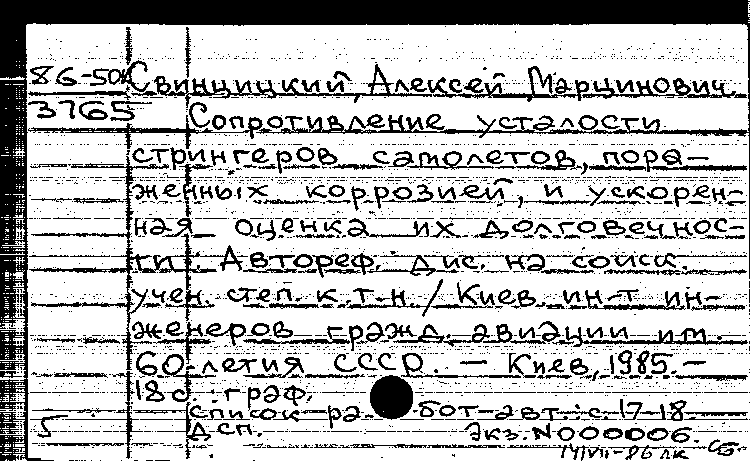 86-50к Свинцицкий, Алексей Марцинович.
3765 Сопротивление усталости
стрингеров самолетов, пора-
женных коррозией, и ускорен-
ная оценка их долговечнос-
ти : Автореф. дис. на соиск.
учен. степ. к.т.н. / Киев. ин-т ин-
женеров гражд. авиации им.
60-летия СССР. — Киев, 1985. —
18 с. : граф.
Список работ авт.: с. 17-18.
5 ДСП. Экз. N 000006.